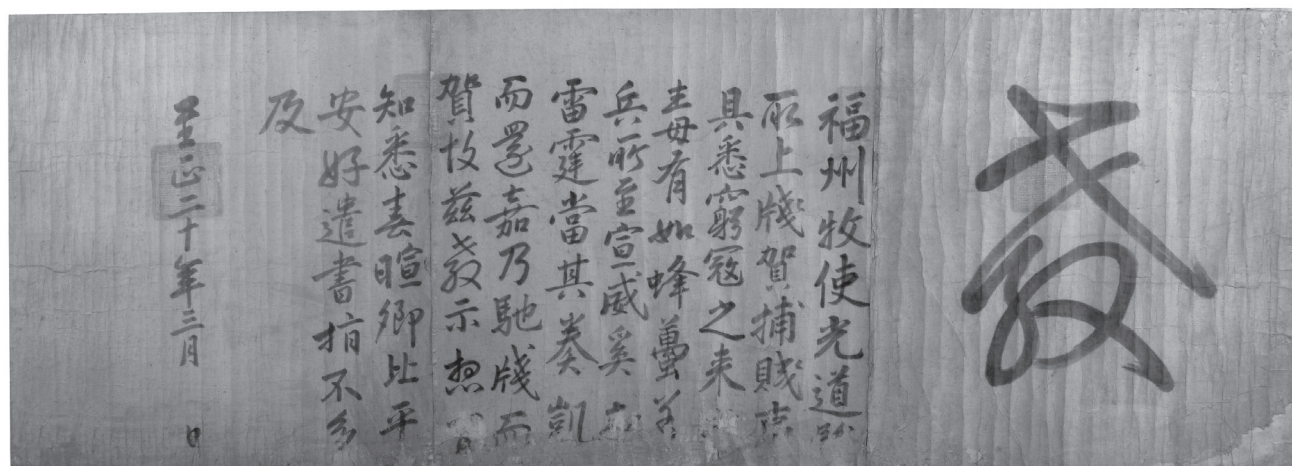 教
福州牧使光道
所上牋賀捕賊事
具悉窮寇之来
毒有如蜂蠆
兵所至宣威奚
雷霆當其奏凱
而還嘉乃馳牋而
賀故兹教示想宜
知悉春暄卿比平
安好遣書指不多
及
至正二十年三月 日